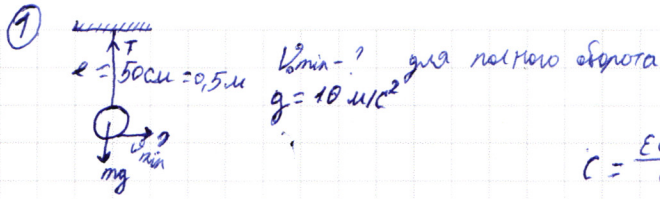 1
T
l = 50см = 0,5м
V₀min - ? для полного оборота
g = 10 м/с²
v min
mg
C =